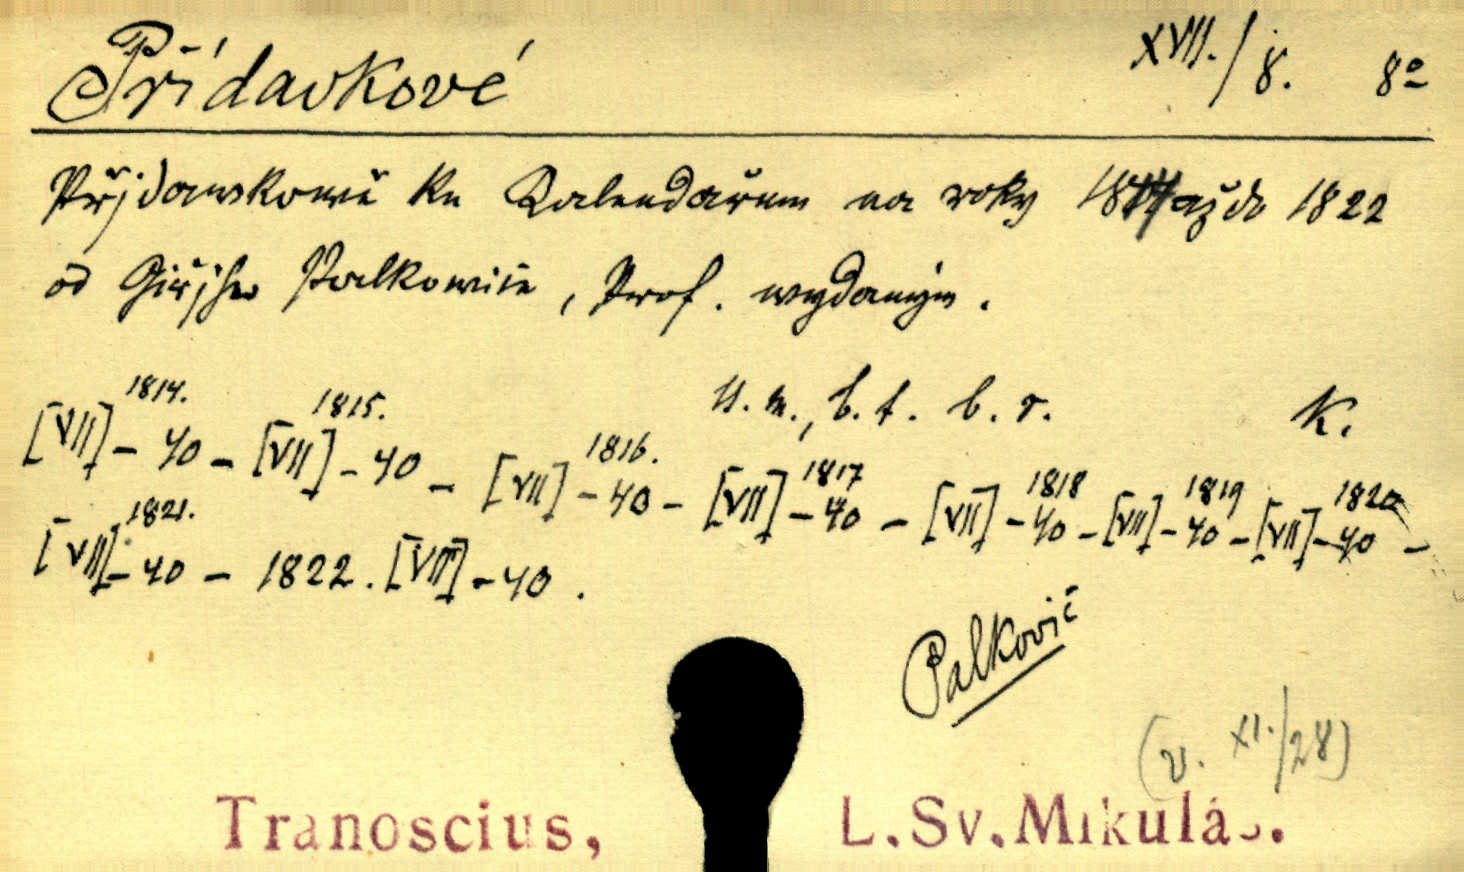 Přídavkové XVII./8. 8º
Přjdawkowé ku Kalendářum na roky 1814 až do 1822
od Giřjho Palkowiče, Prof. wydaným.
U. m., b. t. b. r. K.
[VII] 1814. - 40 - [VII] 1815. - 40 - [VII] 1816. - 40 - [VII] 1817 - 40 - [VII] 1818 - 40 - [VII] 1819 - 40 - [VII] 1820 - 40 -
[VII] 1821. - 40 - 1822. [VII] - 40.
Palkovič
(v. XI./28)
Tranoscius, L.Sv.Mikuláš.